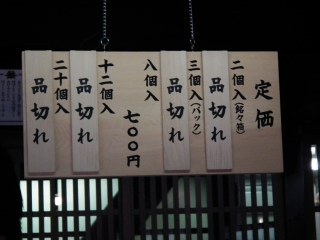 定価
二個入(銘々箱)
品切れ
三個入(パック)
品切れ
八個入
七〇〇円
十二個入
品切れ
二十個入
品切れ